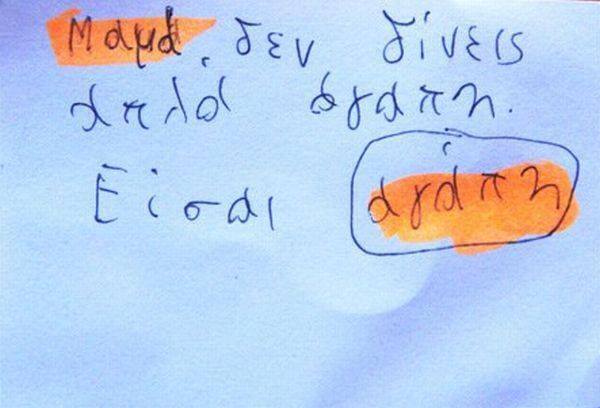 Μαμά, δεν δίνεις
απλά αγάπη.
Είσαι αγάπη